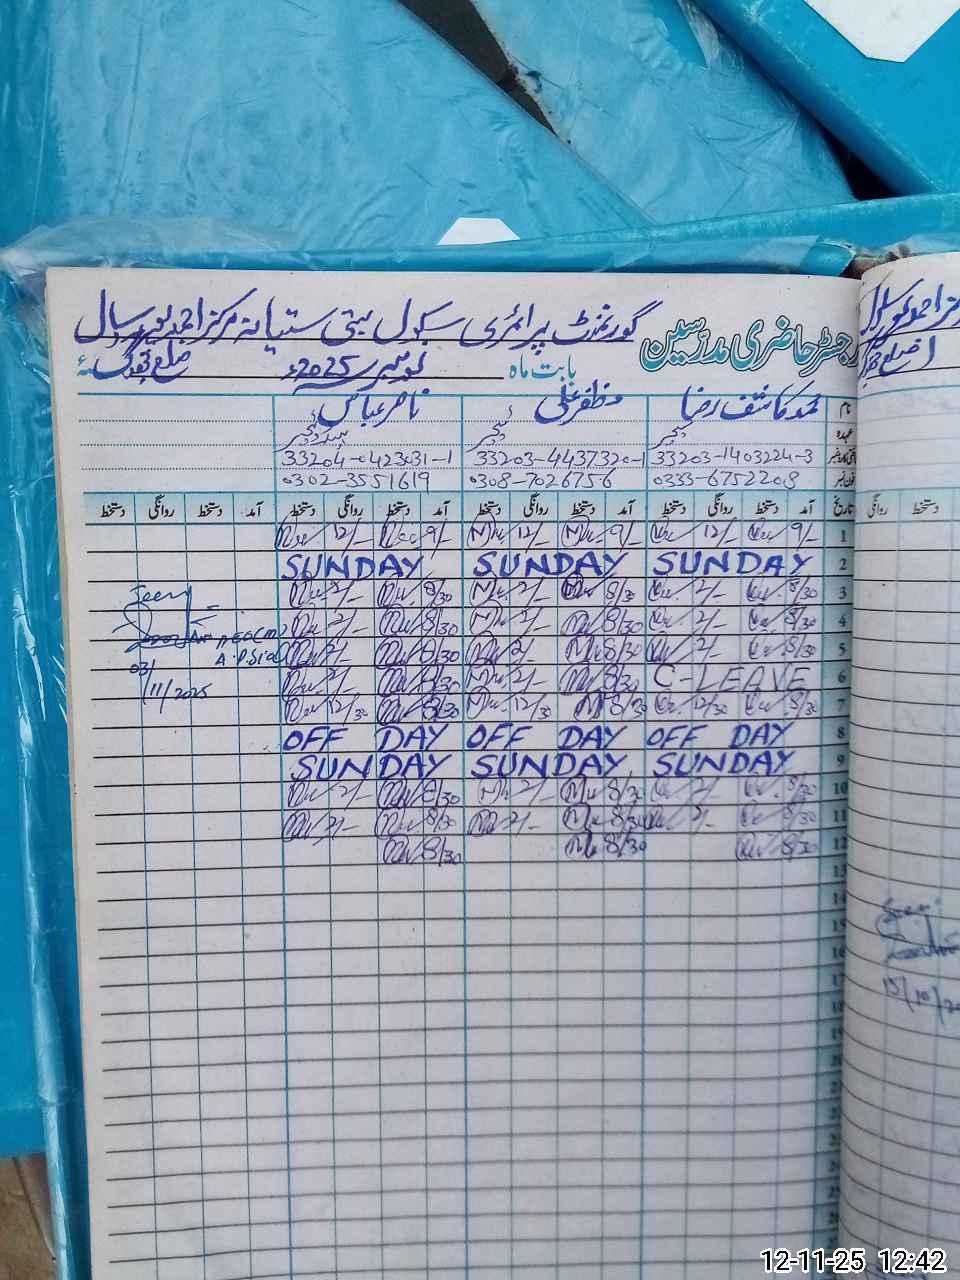 گورنمنٹ پرائمری سکول بستی ستیانہ مرکز احمد پور سیال
رجسٹر حاضری مدرّسین
بابت ماہ نومبر 2025ء ضلع جھنگ
نام محمد کاشف رضا مظفر علی ناصر عباس
عہدہ ٹیچر ٹیچر ہیڈ ٹیچر
33203-1403224-3 33203-4437320-1 33204-0423031-1
فون نمبر 0333-6752208 0308-7026756 0302-3551619
تاریخ آمد دستخط روانگی دستخط آمد دستخط روانگی دستخط آمد دستخط روانگی دستخط آمد دستخط روانگی دستخط
1 9/- 12/- 9/- 12/- 9/- 12/-
2 SUNDAY SUNDAY SUNDAY
3 8/30 2/- 8/30 2/- 8/30 2/-
4 8/30 2/- 8/30 2/- 8/30 2/-
5 8/30 2/- 8/30 2/- 8/30 2/-
6 C-LEAVE 8/30 2/- 8/30 2/-
7 8/30 12/30 8/30 12/30 8/30 12/30
8 OFF DAY OFF DAY OFF DAY
9 SUNDAY SUNDAY SUNDAY
10 8/30 2/- 8/30 2/- 8/30 2/-
11 8/30 2/- 8/30 2/- 8/30 2/-
12 8/30 8/30 8/30
13
14
15
16
17
18
19
20
21
22
23
24
25
Seen
AEO (M)
A.P.Sial
03/
/11/2025
روانگی دستخط
Seen
15/10/20
12-11-25 12:42